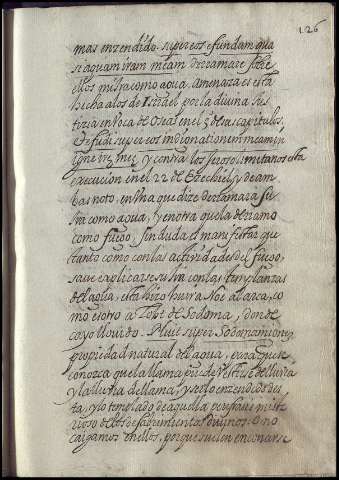 126
mas enzendido. super eos efundam qua
si aquam iram meam derramare sobre
ellos mi ira como agua, amenaza es esta
hecha a los de Israel por la divina Jus
tizia en boca de Oseas en el 5º de sus capitulos.
Et fudi super eos indignationem meam in
igne irę meę y contra los Jerosolimitanos esta
execucion en el 22 de Ezechiel, y de am
bas noto, en una que dize derramara su
ira como agua, y en otra que la derramo
como fuego, sin duda el manifestar que
tanto como con las actividades del fuego,
save explicarse su ira con las templanzas
del agua, esta hizo huir a Noe al arca, co
mo esotro a Lobt de Sodoma, donde
cayo llovido. Pluit super Sodomam ignem
propiedad natural del agua, para que se
conozca que la llama puede vestirse de lluvia
y la lluvia de llama, y se lo enzendido de es
ta, y lo templado de aquella perifrasi miste
rioso de los desabrimientos divinos. O no
caigamos en ellos, porque suelen enconarse